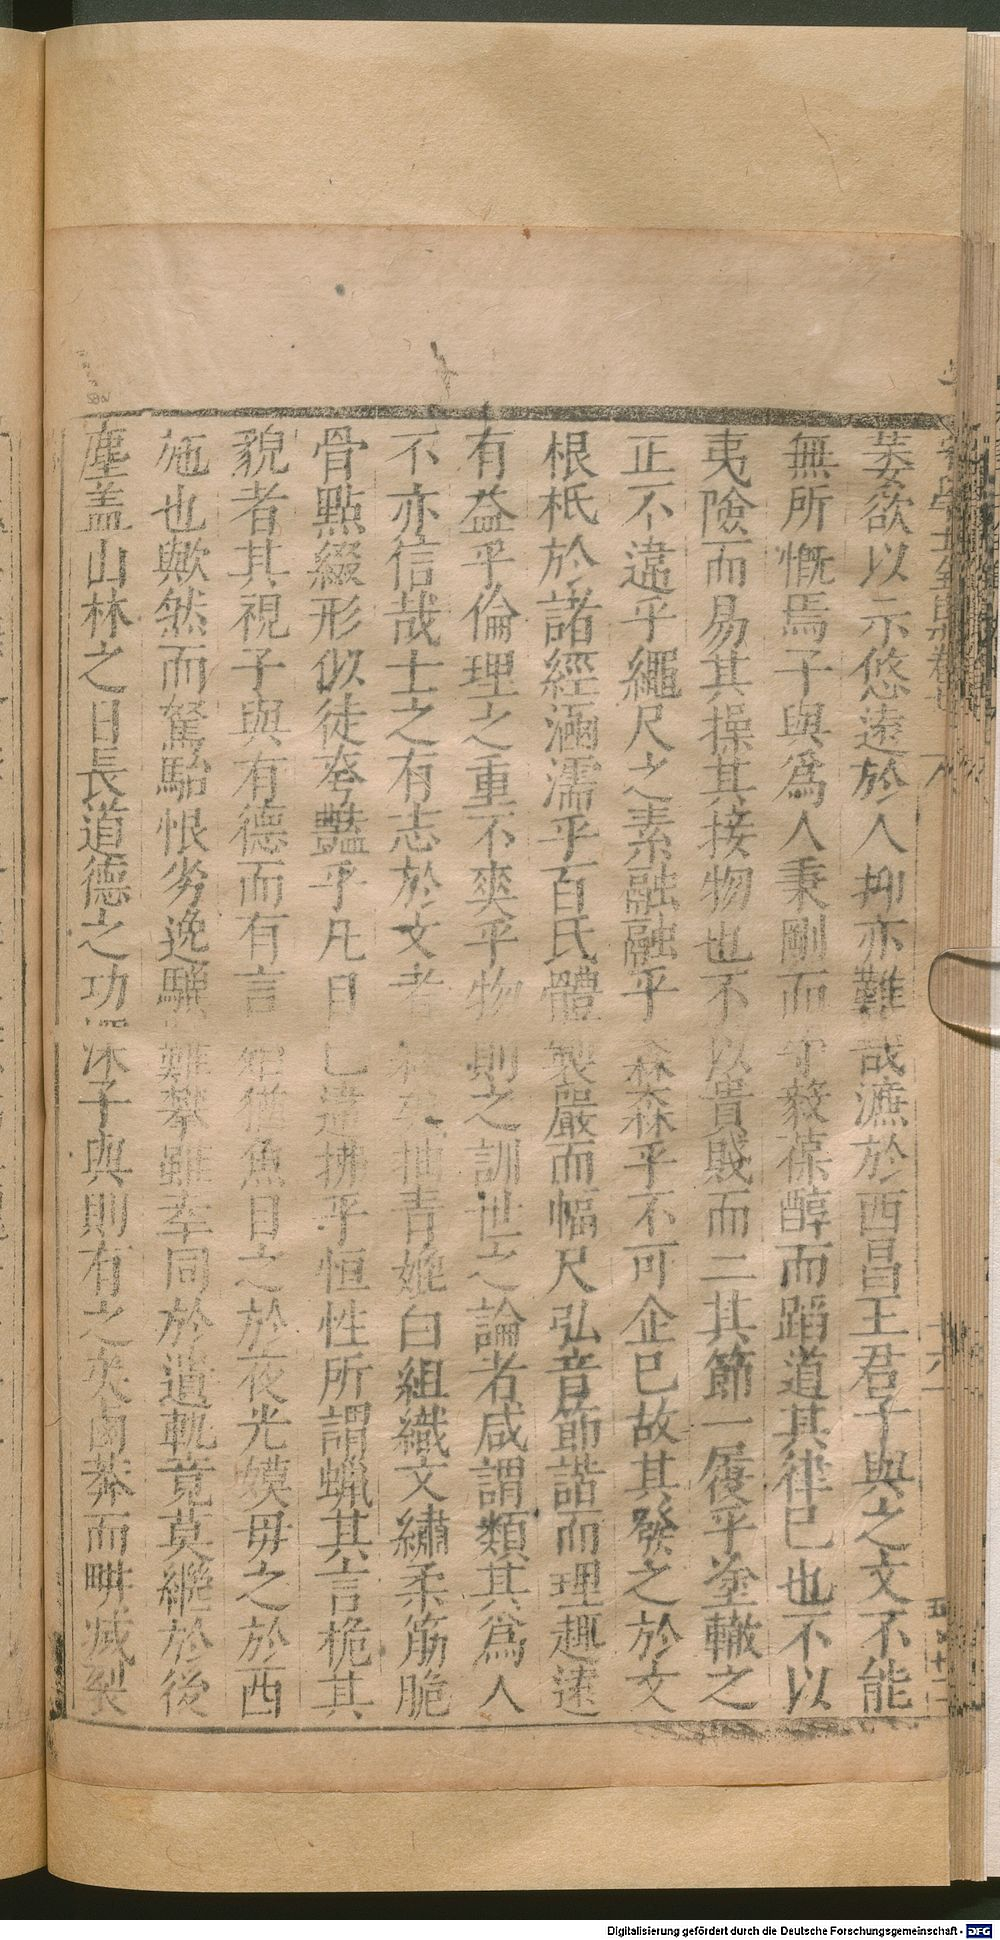 萎欲以示悠遠於人抑亦難哉漉於西昌王君子與之文不能
無所慨焉子與爲人秉剛而守毅葆醇而蹈道其律已也不以
夷險而易其操其接物也不以貴賤而二其節一履乎塗轍之
正不違乎繩尺之素融融乎森森乎不可企已故其發之於文
根柢於諸經涵濡乎百氏體製嚴而幅尺弘音節諧而理趣遠
有益乎倫理之重不爽乎物則之訓世之論者咸謂類其爲人
不亦信哉士之有志於文者抽青媲白組織文繡柔筋脆
骨點綴形似徒夸豔乎凡目已違拂乎恒性所謂蠟其言梔其
貌者其視子與有德而有言猶魚目之於夜光嫫母之於西
施也歟然而駑駘恨劣逸驥難攀雖幸同於遺軌竟莫繼於後
塵蓋山林之日長道德之功深子與則有之矣鹵莽而畊滅裂
宋學士全集卷七
八
六一
五百十二
Digitalisierung gefördert durch die Deutsche Forschungsgemeinschaft - DFG